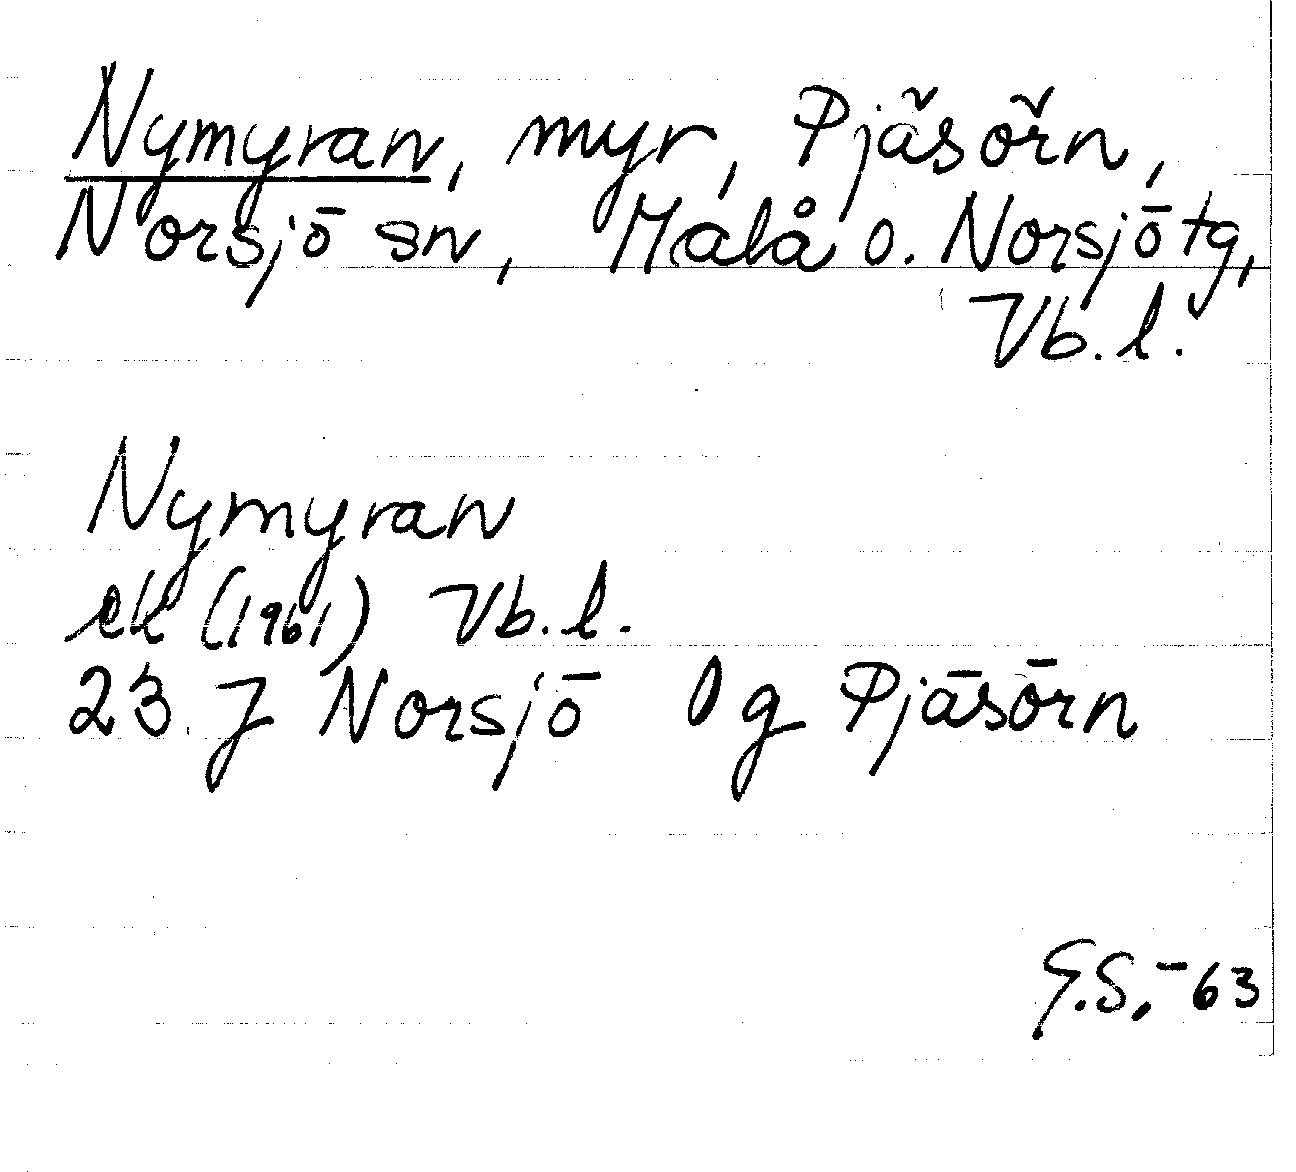 Nymyran, myr, Pjäsörn,
Norsjö sn, Malå o. Norsjö tg,
Vb. l.
Nymyran
ek (1961) Vb. l.
23 J Norsjö 0 g Pjäsörn
G.S. -63